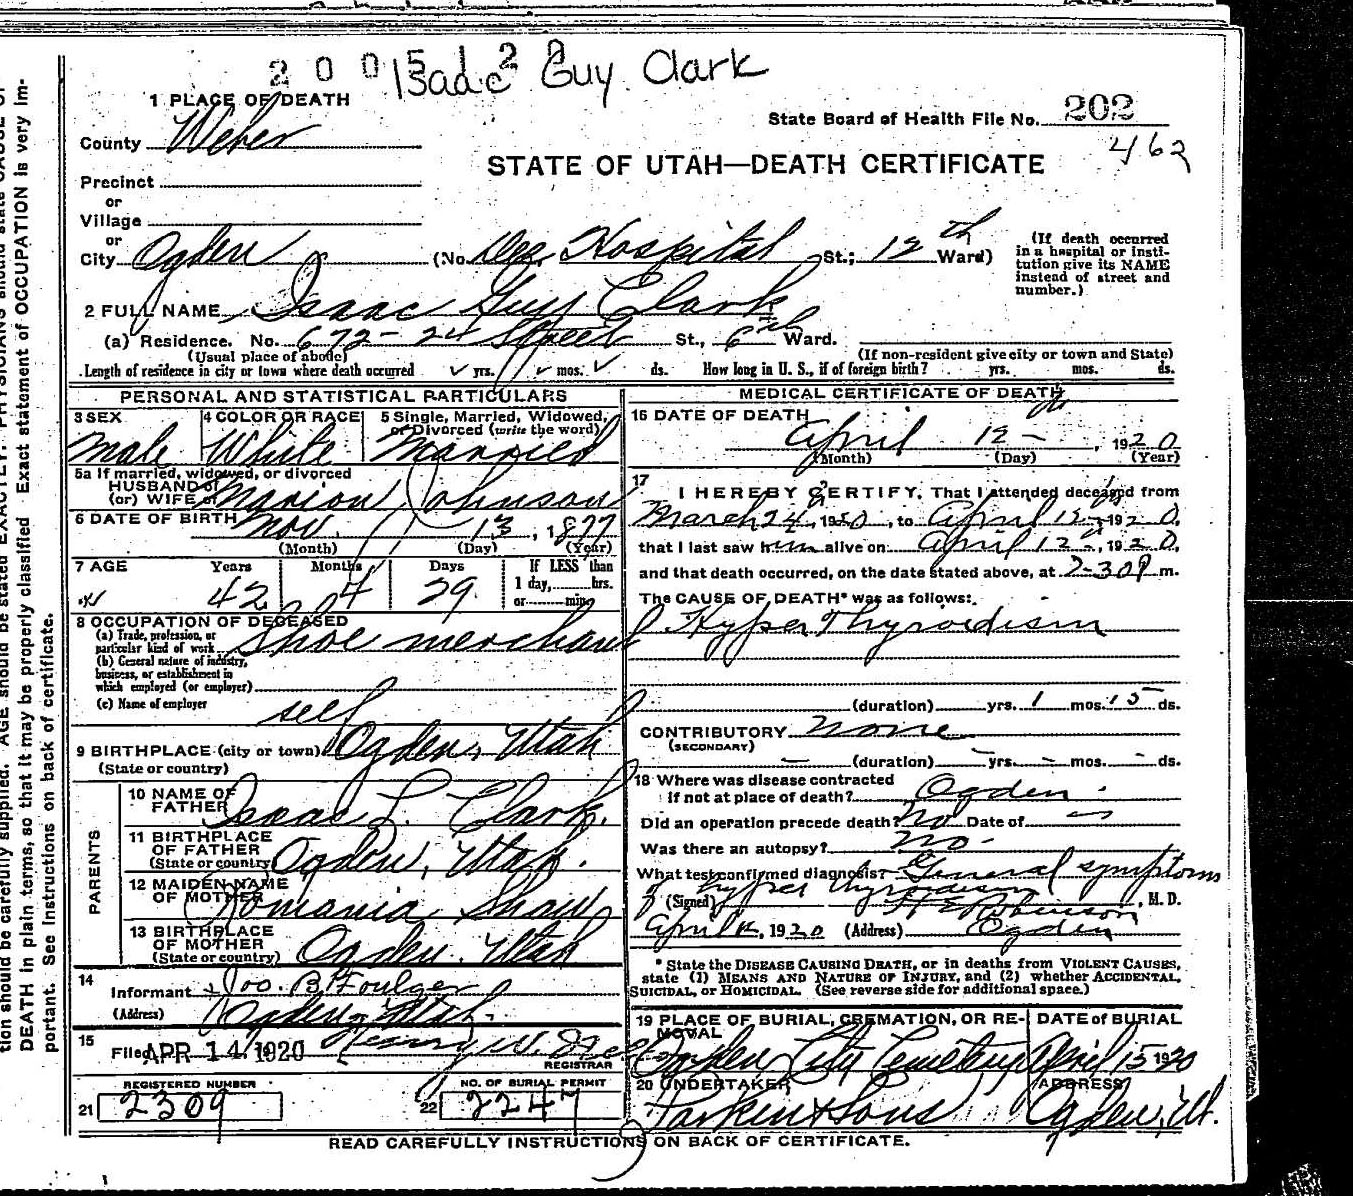 2005 1 2 0 Isaac Guy Clark
1 PLACE OF DEATH
County Weber
State Board of Health File No. 202
462
STATE OF UTAH—DEATH CERTIFICATE
Precinct
or
Village
or
City Ogden (No. Dee Hospital St.; 12th Ward)
(If death occurred in a hospital or insti-
tution give its NAME
instead of street and
number.)
2 FULL NAME Isaac Guy Clark
(a) Residence. No. 672-24 Street St., 6th Ward.
(Usual place of abode) (If non-resident give city or town and State)
Length of residence in city or town where death occurred yrs. mos. ds. How long in U. S., if of foreign birth? yrs. mos. ds.
PERSONAL AND STATISTICAL PARTICULARS
3 SEX 4 COLOR OR RACE 5 Single, Married, Widowed,
or Divorced (write the word)
Male White Married
5a If married, widowed, or divorced
HUSBAND of
(or) WIFE of Marion Johnson
6 DATE OF BIRTH Nov. 13, 1877
(Month) (Day) (Year)
7 AGE Years Months Days If LESS than
1 day, hrs.
or min.
42 4 29
8 OCCUPATION OF DECEASED
(a) Trade, profession, or
particular kind of work Shoe merchant
(b) General nature of industry,
business, or establishment in
which employed (or employer)
(c) Name of employer self
9 BIRTHPLACE (city or town) Ogden, Utah
(State or country)
PARENTS
10 NAME OF
FATHER Isaac L. Clark.
11 BIRTHPLACE
OF FATHER
(State or country) Ogden, Utah.
12 MAIDEN NAME
OF MOTHER Romania Shaw
13 BIRTHPLACE
OF MOTHER
(State or country) Ogden. Utah
14 Informant Jos. B. Foulger
(Address) Ogden, Utah.
15 Filed APR 14 1920 Henry W.
REGISTRAR
REGISTERED NUMBER NO. OF BURIAL PERMIT
21 2309 22 2247
MEDICAL CERTIFICATE OF DEATH
16 DATE OF DEATH
April 12 th, 1920
(Month) (Day) (Year)
17 I HEREBY CERTIFY, That I attended deceased from
March 24, 1920, to April 12, 1920,
that I last saw him alive on April 12, 1920,
and that death occurred, on the date stated above, at 2-30 P m.
The CAUSE OF DEATH* was as follows:
Hyper Thyroidism
(duration) yrs. 1 mos. 15 ds.
CONTRIBUTORY none
(SECONDARY)
(duration) - yrs. - mos. - ds.
18 Where was disease contracted
if not at place of death? Ogden
Did an operation precede death? No Date of
Was there an autopsy? no
What test confirmed diagnosis? General symptoms
of hyper thyroidism
(Signed) H E Robinson, M. D.
April 12, 1920 (Address) Ogden
*State the DISEASE CAUSING DEATH, or in deaths from VIOLENT CAUSES,
state (1) MEANS AND NATURE OF INJURY, and (2) whether ACCIDENTAL,
SUICIDAL, or HOMICIDAL. (See reverse side for additional space.)
19 PLACE OF BURIAL, CREMATION, OR RE-
MOVAL DATE of BURIAL
Ogden City Cemetery April 15 1920
20 UNDERTAKER ADDRESS
Larkin & Sons Ogden, Ut.
READ CAREFULLY INSTRUCTIONS ON BACK OF CERTIFICATE.
tion should be carefully supplied. AGE should be stated EXACTLY. PHYSICIANS should state CAUSE OF
DEATH in plain terms, so that it may be properly classified. Exact statement of OCCUPATION is very im-
portant. See instructions on back of certificate.